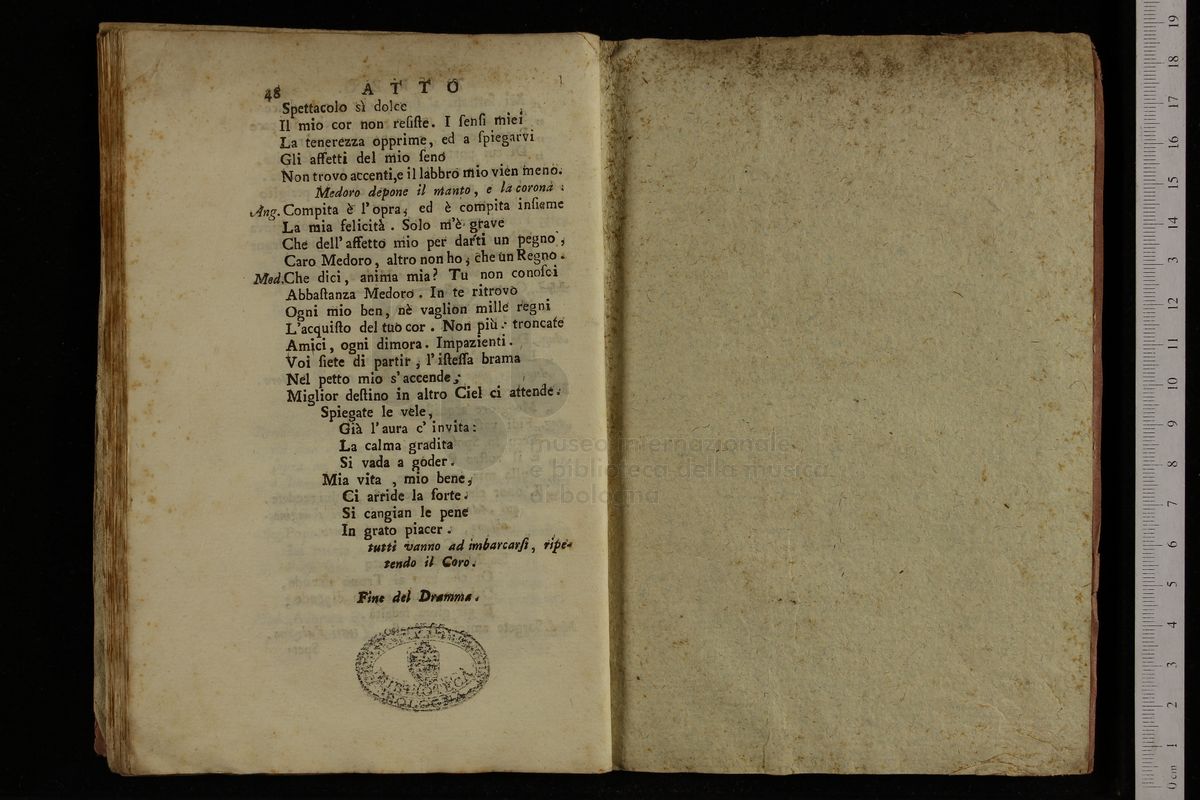 48 ATTO
Spettacolo sì dolce
Il mio cor non reſiſte. I ſenſi miei
La tenerezza opprime, ed a ſpiegarvi
Gli affetti del mio ſeno
Non trovo accenti, e il labbro mio vien meno.
Medoro depone il manto, e la corona.
Ang. Compita è l'opra, ed è compita inſieme
La mia felicità. Solo m'è grave
Che dell'affetto mio per darti un pegno,
Caro Medoro, altro non ho, che un Regno.
Med. Che dici, anima mia? Tu non conoſci
Abbaſtanza Medoro. In te ritrovo
Ogni mio ben, nè vaglion mille regni
L'acquiſto del tuo cor. Non più: troncate
Amici, ogni dimora. Impazienti.
Voi ſiete di partir, l'iſteſſa brama
Nel petto mio s'accende;
Miglior deſtino in altro Ciel ci attende.
Spiegate le vele,
Già l'aura c'invita:
La calma gradita
Si vada a goder.
Mia vita, mio bene,
Ci arride la ſorte.
Si cangian le pene
In grato piacer.
tutti vanno ad imbarcarſi, ripe-
tendo il Coro.
Fine del Dramma.
BIBLIOTECA
BOLOGNA
museo internazionale
e biblioteca della musica
di bologna
19
18
17
16
15
14
13
12
11
10
9
8
7
6
5
4
3
2
1
0 cm